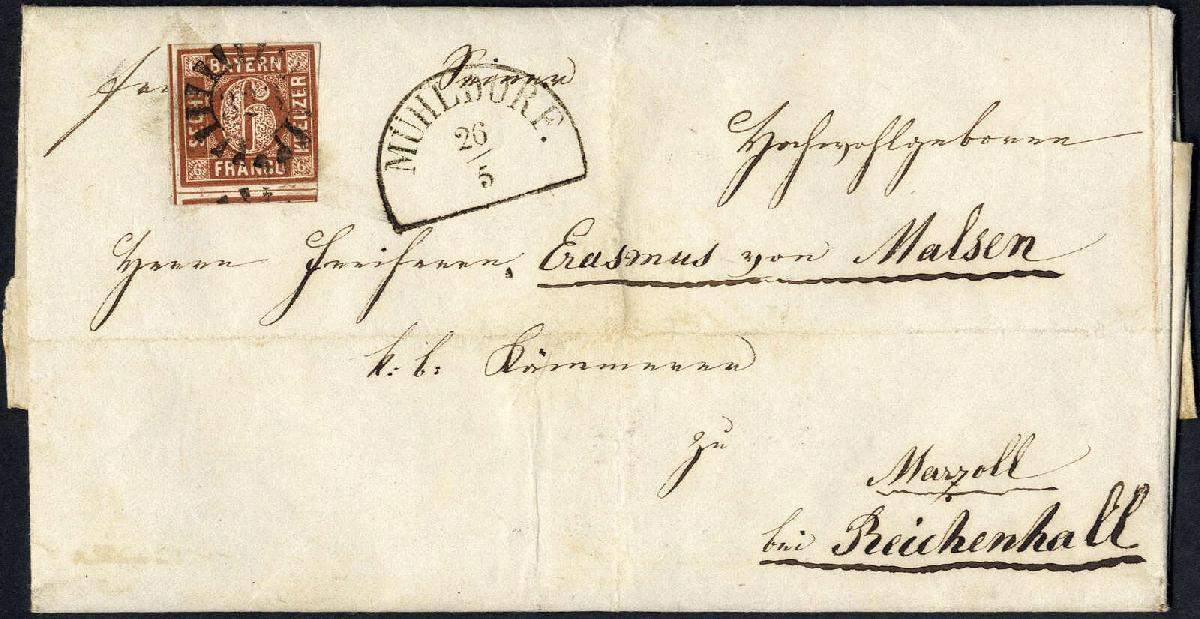 BAYERN
SECHS
KREUZER
FRANCO
6
6
6
6
6
MÜHLDORF.
26
5
Seiner
Hochwohlgeboren
Herrn Freiherrn Erasmus von Malsen
k: b: Kämmerer
zu
Marzoll
bei Reichenhall